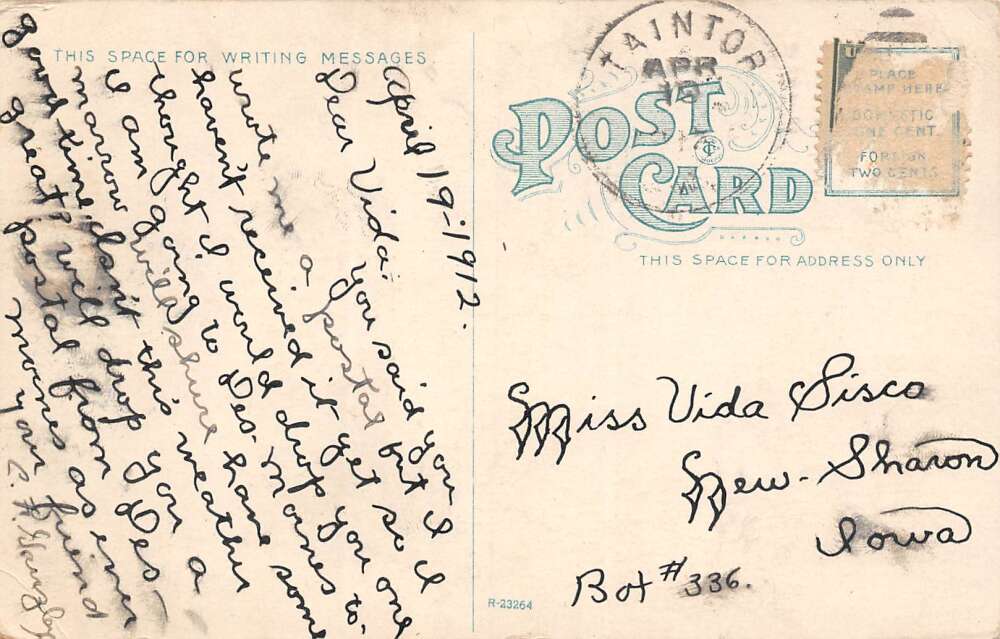 THIS SPACE FOR WRITING MESSAGES
April 19-1912.
Dear Vida: you said you
wrote me a postal but I
haven't received it yet so I
thought I would drop you one
I am going to Des-moines to-
morrow will shure have some
good time. Isn't this weather
great? will drop you a
postal from Des
moines as ever
your friend
TAINTOR
APR
19
POST CARD
PLACE
STAMP HERE
DOMESTIC
ONE CENT
FOREIGN
TWO CENTS
THIS SPACE FOR ADDRESS ONLY
Miss Vida Sisco
New-Sharon
Iowa
Box #336.
R-23264